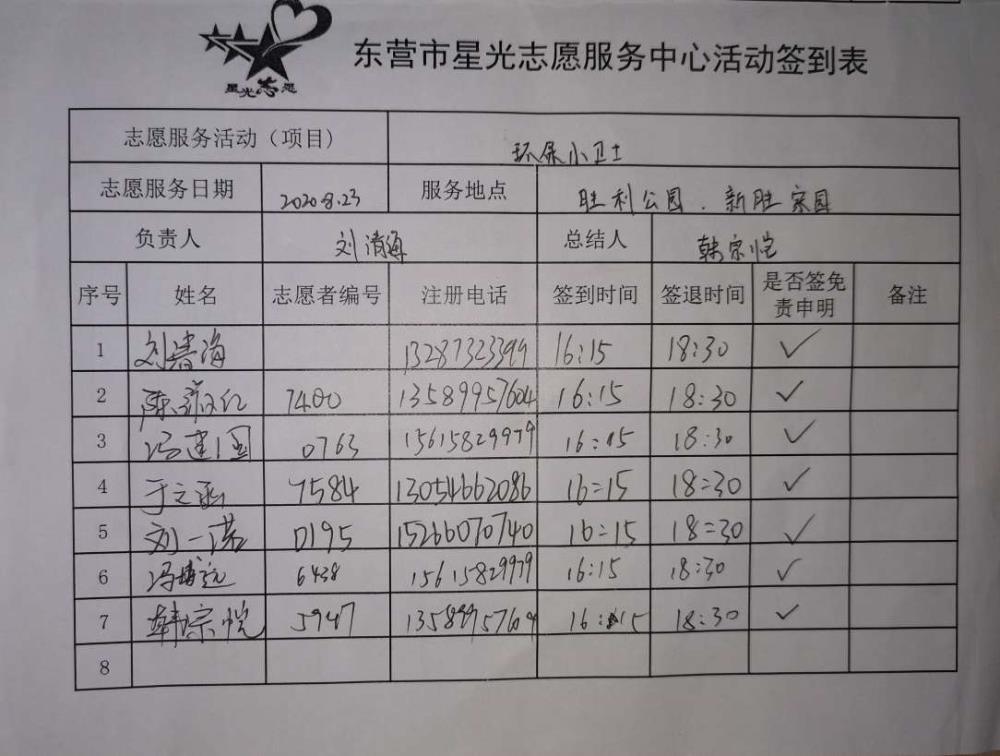 星光志愿
东营市星光志愿服务中心活动签到表
志愿服务活动（项目） 环保小卫士
志愿服务日期 2020.8.23 服务地点 胜利公园、新胜家园
负责人 刘清海 总结人 韩宗悦
序号 姓名 志愿者编号 注册电话 签到时间 签退时间 是否签免责申明 备注
1 刘清海 13287323399 16:15 18:30 ✓
2 7400 13589957604 16:15 18:30 ✓
3 冯建国 0763 15615829979 16:15 18:30 ✓
4 于之涵 7584 13054662086 16:15 18:30 ✓
5 刘一诺 0195 15266070740 16:15 18:30 ✓
6 冯博远 6438 15615829979 16:15 18:30 ✓
7 韩宗悦 5947 16:15 18:30 ✓
8